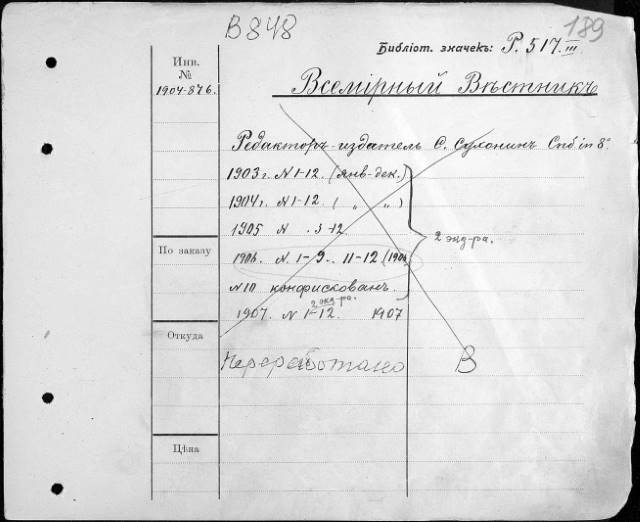 В848
189
Библіот. значекъ: Р. 517. III
Инв.
№
1904-876.
Всемірный Вѣстникъ
Редакторъ-издатель С. Сухонинъ Спб in 8°
1903 г. N 1-12. (янв-дек.)
1904 г. N 1-12. ( " " )
1905 N 3-12.
2 экз-ра.
По заказу
1906. N. 1-9. 11-12 (1906
N 10 конфискованъ.
2 экз-ра.
1907. N 1-12. 1907
Откуда
Переработано В
Цѣна